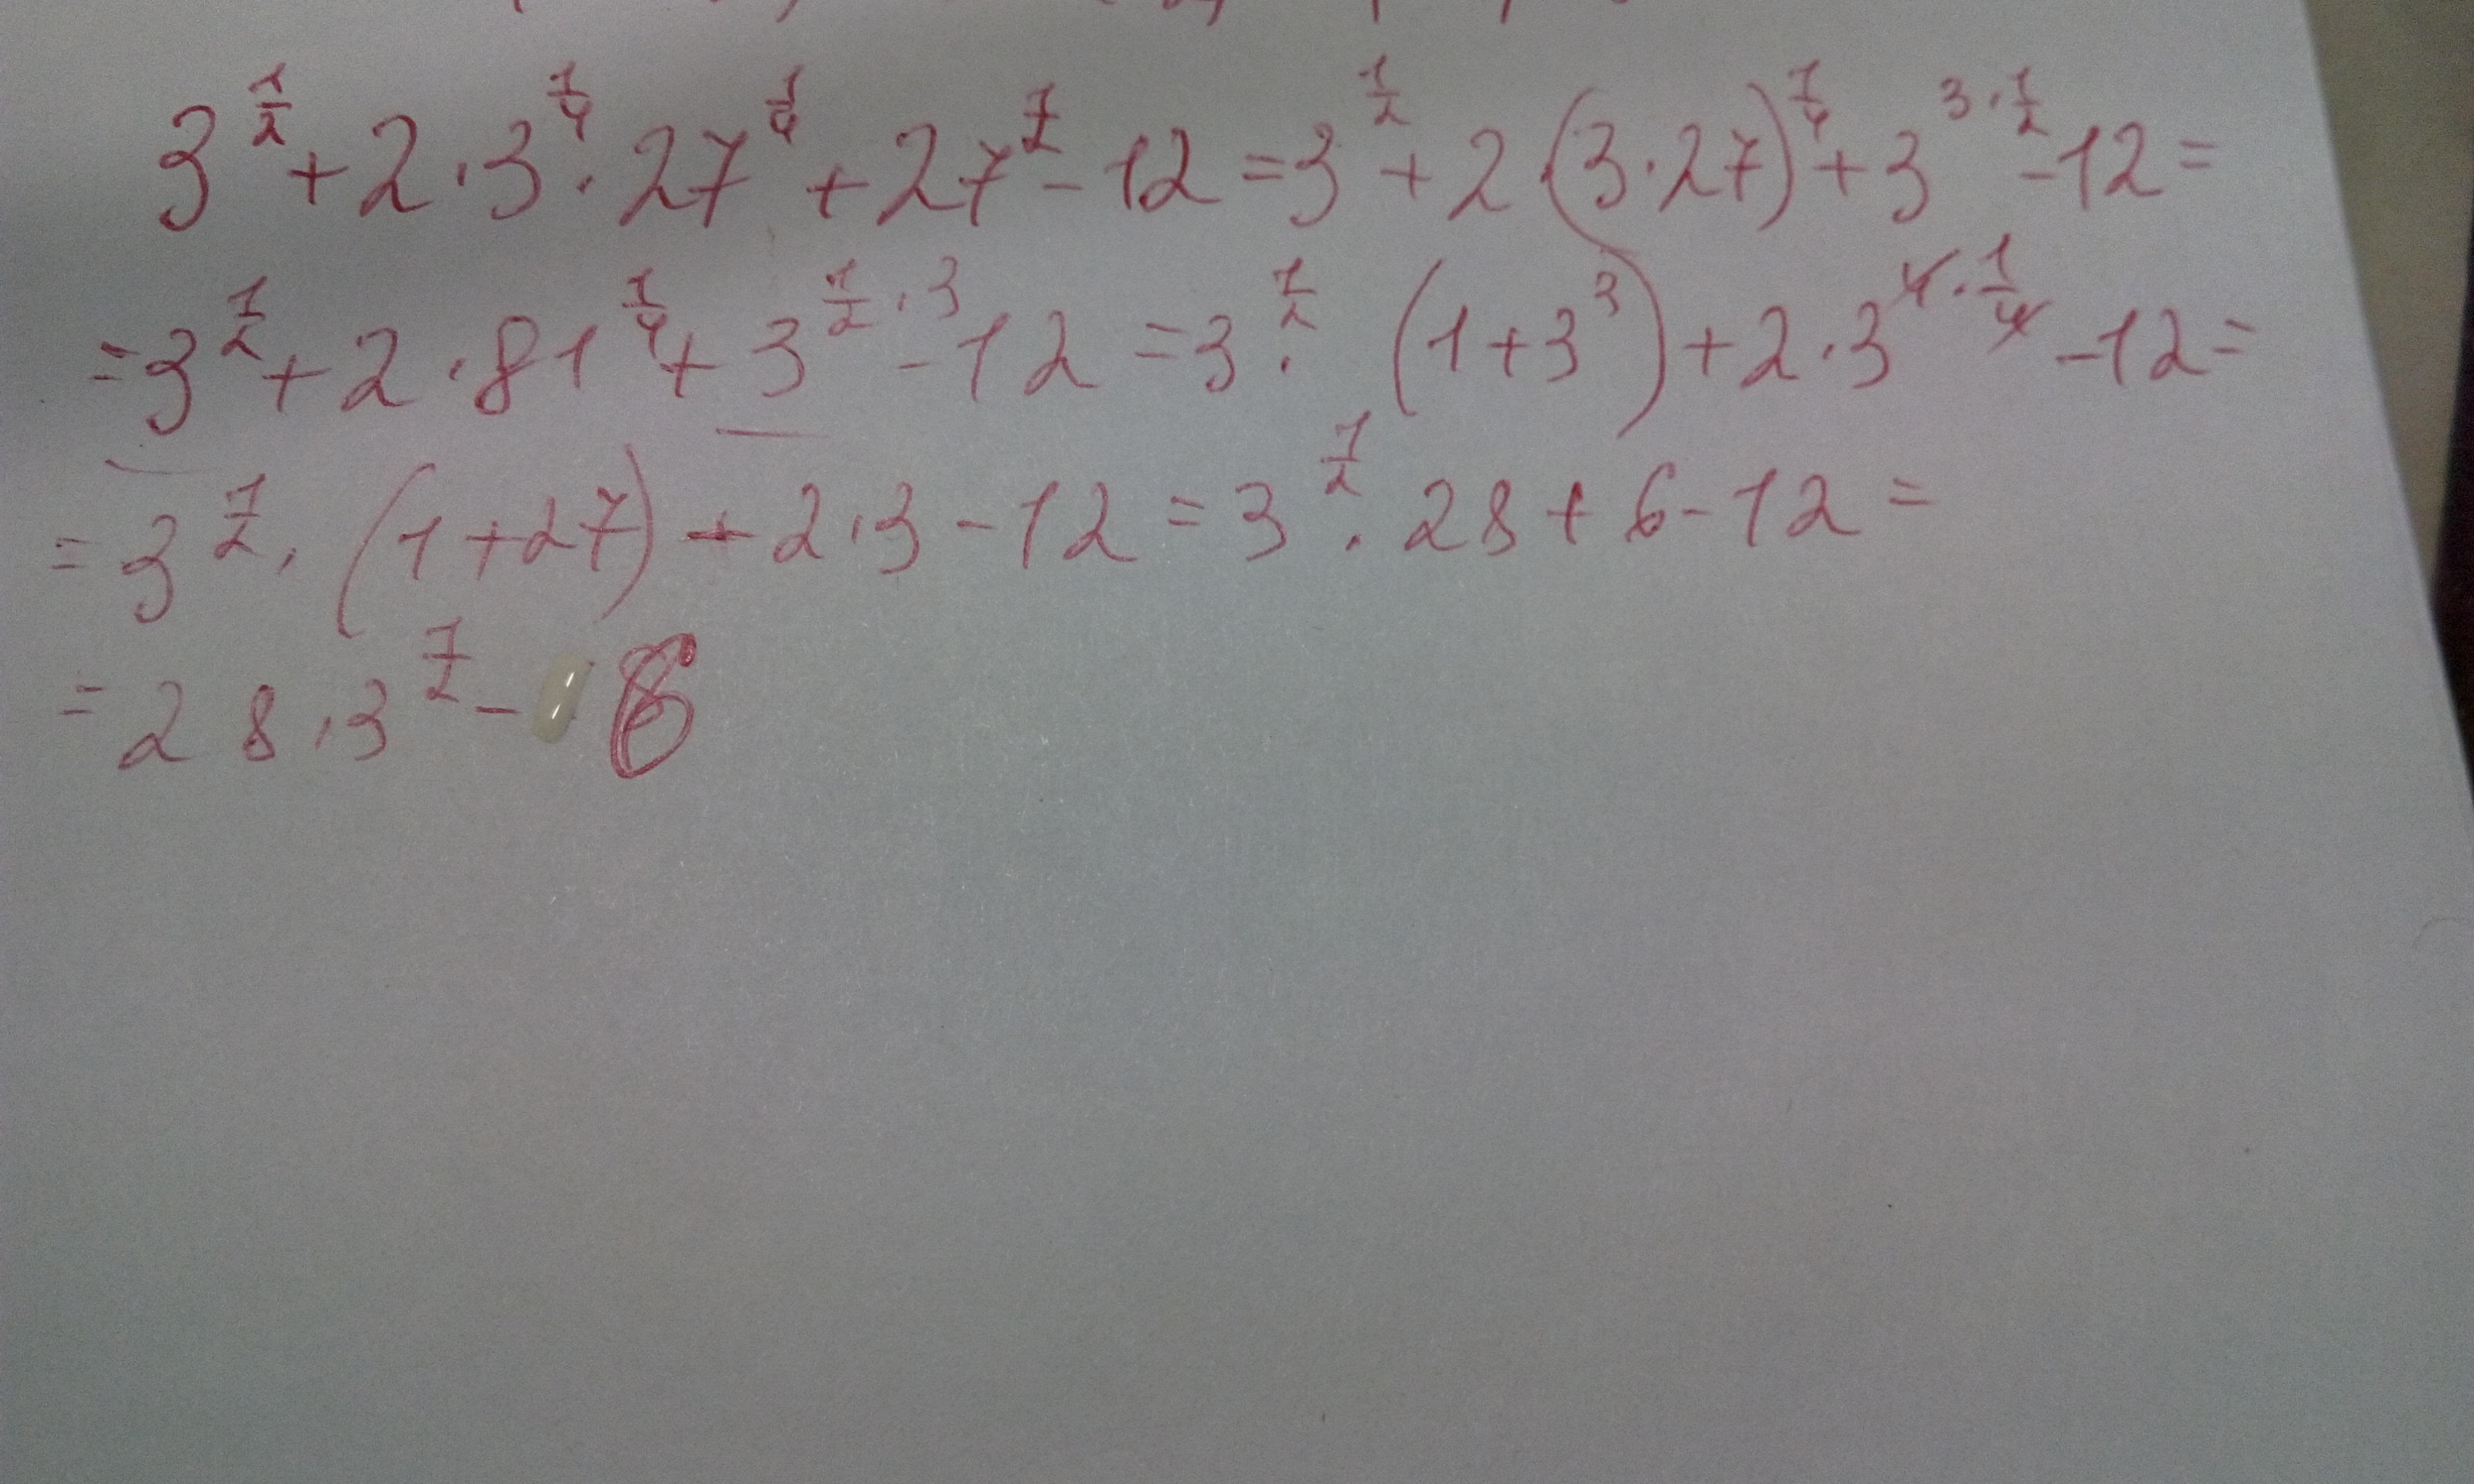 3^{1/2} + 2 · 3^{1/4} · 27^{1/4} + 27^{1/2} - 12 = 3^{1/2} + 2 · (3 · 27)^{1/4} + 3^{3 · 1/2} - 12 =
= 3^{1/2} + 2 · 81^{1/4} + 3^{1/2 · 3} - 12 = 3^{1/2} · (1 + 3^3) + 2 · 3^{4 · 1/4} - 12 =
= 3^{1/2} · (1 + 27) + 2 · 3 - 12 = 3^{1/2} · 28 + 6 - 12 =
= 28 · 3^{1/2} - 6